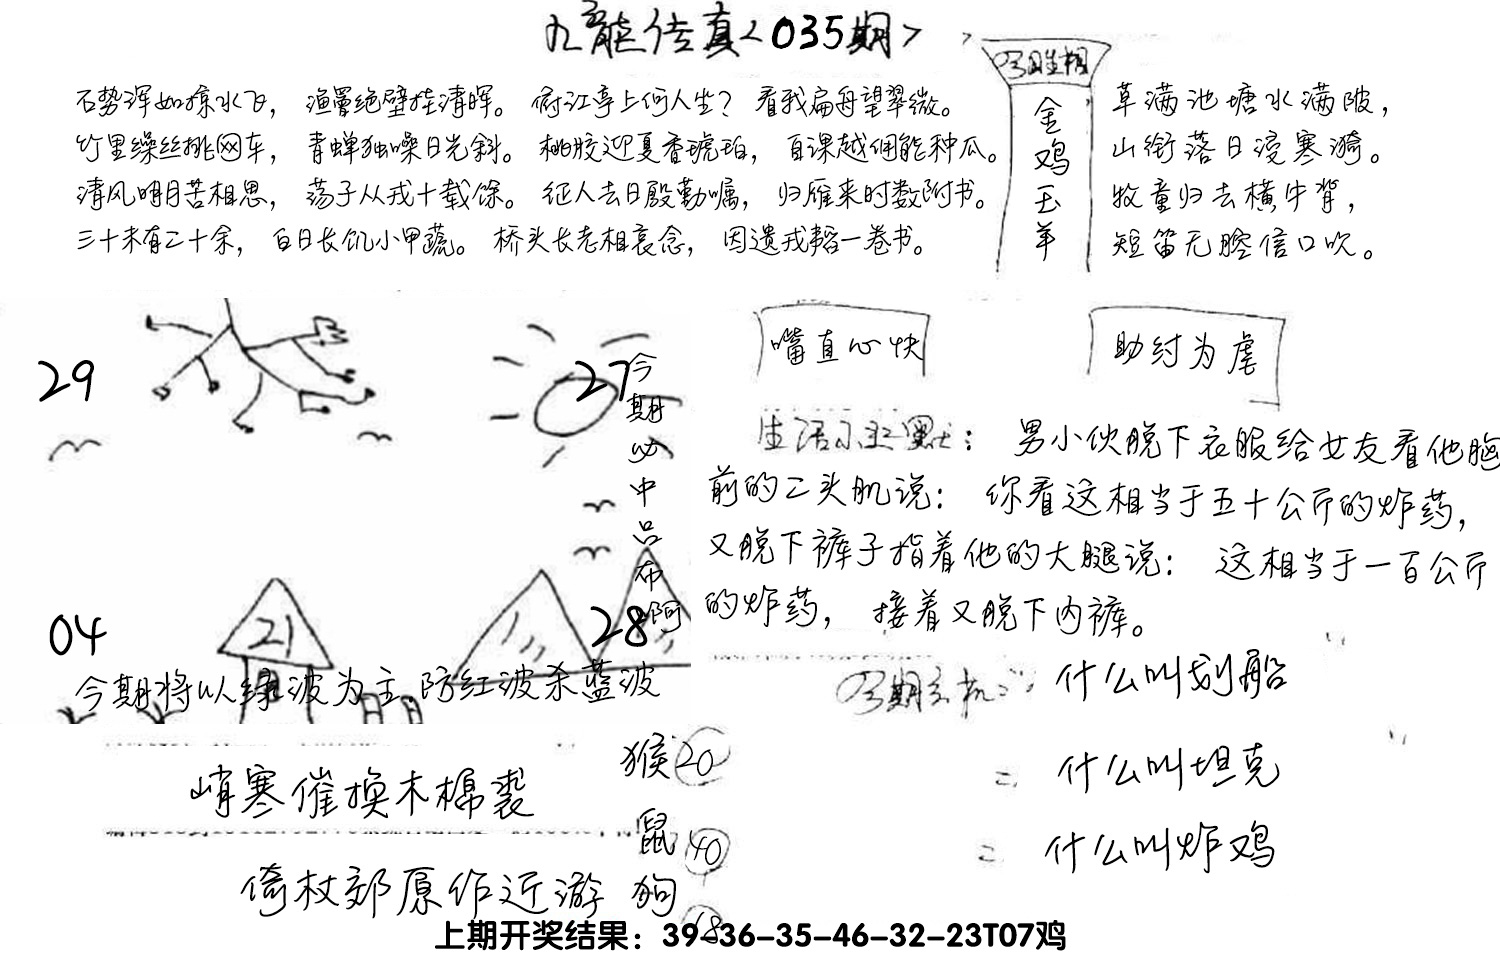 九龙传真<035期>
石势浑如掠水飞，渔罾绝壁挂清晖。俯江亭上何人坐？看我扁舟望翠微。
竹里缲丝挑网车，青蝉独噪日光斜。桃胶迎夏香琥珀，自课越佣能种瓜。
清风明月苦相思，荡子从戎十载馀。征人去日殷勤嘱，归雁来时数附书。
三十未有二十余，白日长饥小甲蔬。桥头长老相哀念，因遗戎韬一卷书。
今期生相
金鸡玉羊
草满池塘水满陂，
山衔落日浸寒漪。
牧童归去横牛背，
短笛无腔信口吹。
29
27
04
21
28
今期必中品布阿
今期将以绿波为主防红波杀蓝波
嘴直心快
助纣为虐
生活小幽默：男小伙脱下衣服给女友看他胸
前的二头肌说：你看这相当于五十公斤的炸药，
又脱下裤子指着他的大腿说：这相当于一百公斤
的炸药，接着又脱下内裤。
今期玄机
什么叫划船
什么叫坦克
什么叫炸鸡
峭寒催换木棉裘
倚杖郊原作近游
猴20
鼠40
狗18
上期开奖结果：39-36-35-46-32-23T07鸡